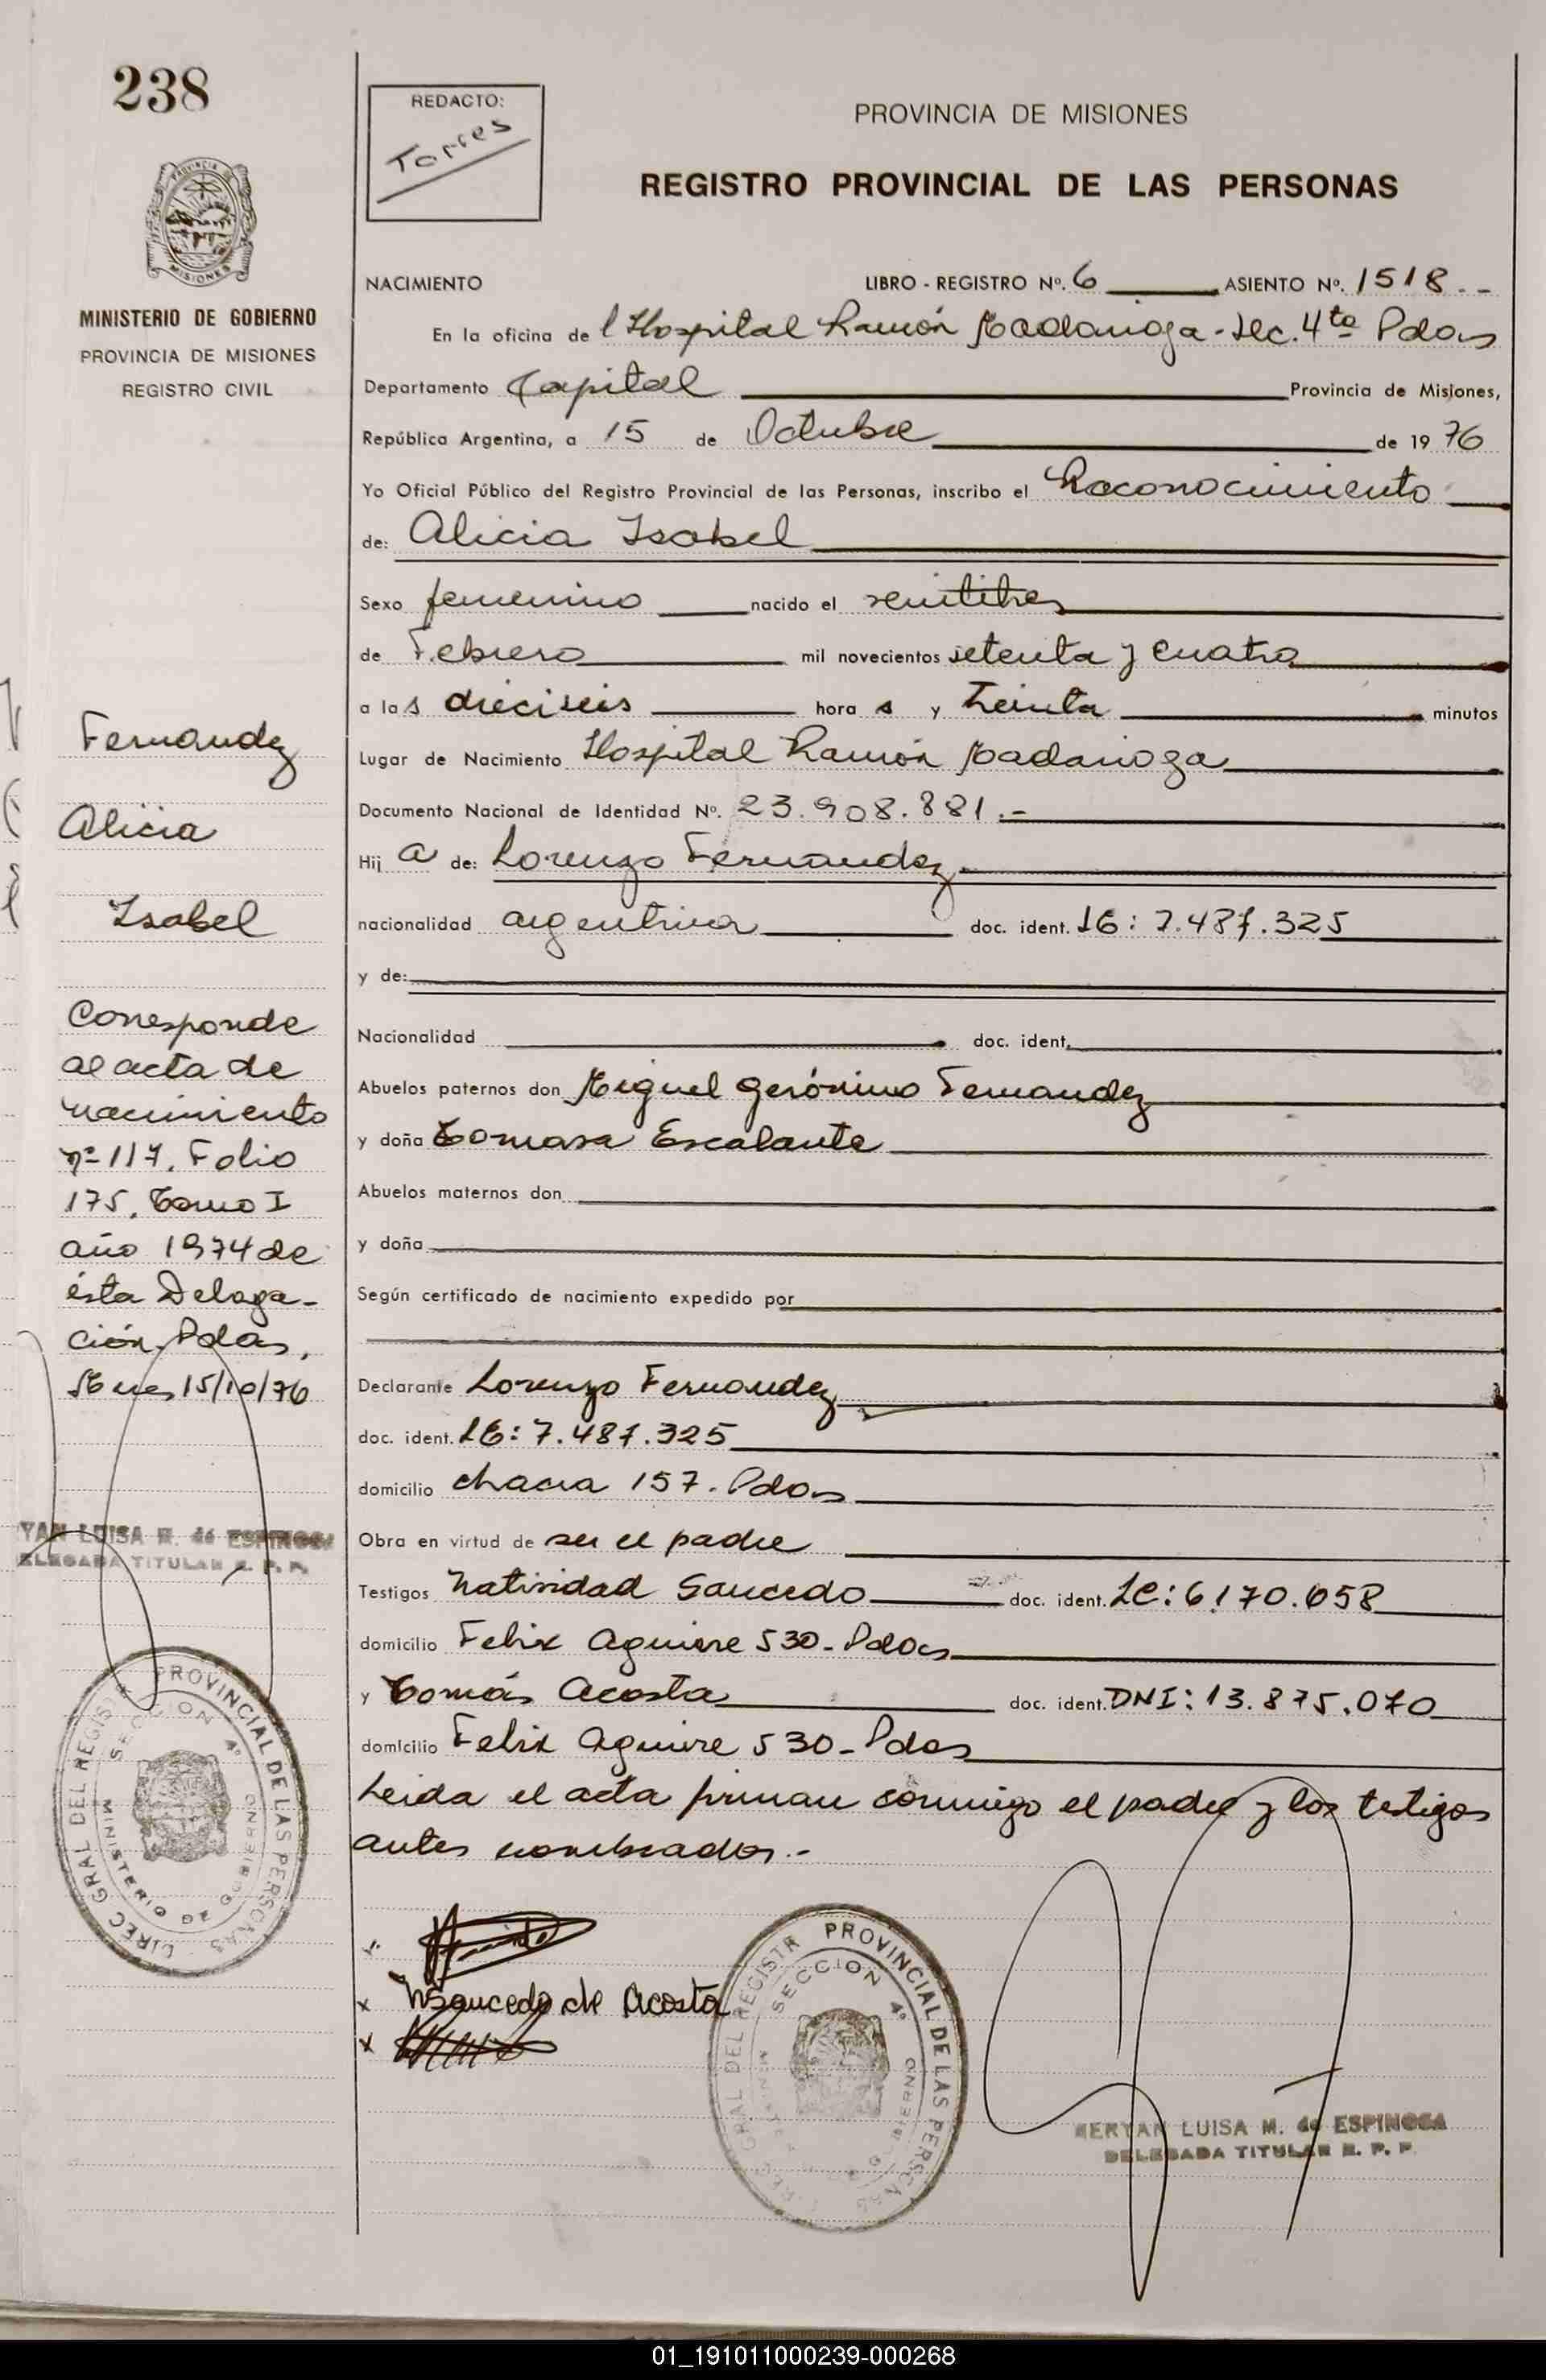 238
PROVINCIA DE
MISIONES
MINISTERIO DE GOBIERNO
PROVINCIA DE MISIONES
REGISTRO CIVIL
Fernandez
Alicia
Isabel
Corresponde
al acta de
nacimiento
nº 117. Folio
175. Tomo I
año 1974 de
ésta Delega-
ción. Pdas,
Mnes 15/10/76
YAN LUISA M. de ESPINOSA
ELEGADA TITULAR R. P. P.
DIREC GRAL DEL REGISTR PROVINCIAL DE LAS PERSONAS
SECCION 4º
MINISTERIO DE GOBIERNO
REDACTO:
Torres
PROVINCIA DE MISIONES
REGISTRO PROVINCIAL DE LAS PERSONAS
NACIMIENTO LIBRO - REGISTRO Nº. 6 ASIENTO Nº. 1518.--
En la oficina del Hospital Ramón Madariaga - Sec. 4ta Pdas
Departamento Capital Provincia de Misiones,
República Argentina, a 15 de Octubre de 1976
Yo Oficial Público del Registro Provincial de las Personas, inscribo el Reconocimiento
de: Alicia Isabel
Sexo femenino nacido el veintitres
de Febrero mil novecientos setenta y cuatro
a las dieciseis horas y treinta minutos
Lugar de Nacimiento Hospital Ramón Madariaga
Documento Nacional de Identidad Nº. 23.908.881.-
Hija de: Lorenzo Fernandez
nacionalidad argentina doc. ident. LE: 7.487.325
y de:
Nacionalidad doc. ident.
Abuelos paternos don Miguel Gerónimo Fernandez
y doña Tomasa Escalante
Abuelos maternos don
y doña
Según certificado de nacimiento expedido por
Declarante Lorenzo Fernandez
doc. ident. LE: 7.487.325
domicilio chacra 157. Pdas
Obra en virtud de ser el padre
Testigos Natividad Saucedo doc. ident. LC: 6.170.658
domicilio Felix Aguirre 530 - Pdas
y Tomás Acosta doc. ident. DNI: 13.875.070
domicilio Felix Aguirre 530 - Pdas
Leida el acta firman conmigo el padre y los testigos
antes nombrados.-
x
x NSaucedo de Acosta
x
REC GRAL DEL REGISTR PROVINCIAL DE LAS PERSONAS
SECCION 4º
MERYAN LUISA M. de ESPINOSA
DELEGADA TITULAR R. P. P.
01_191011000239-000268